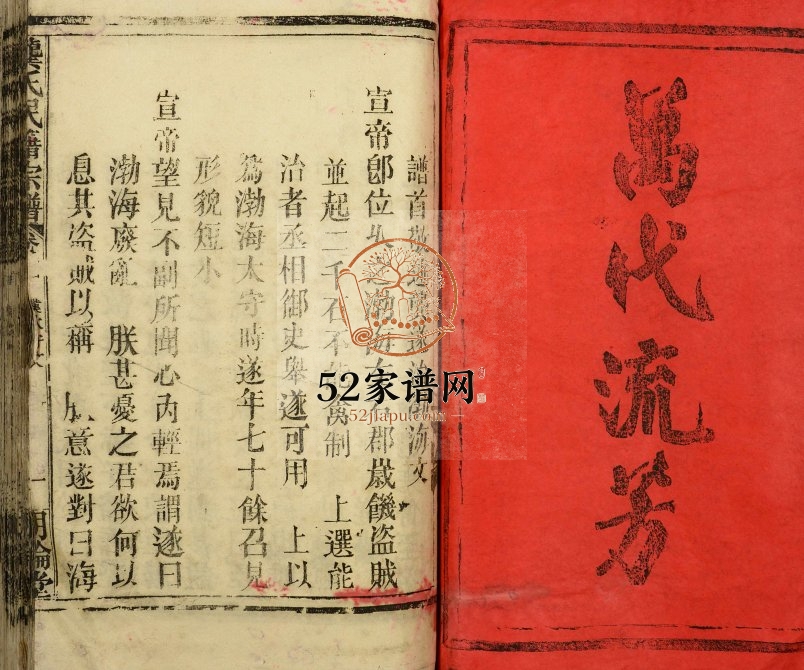 萬代流芳
譜首
宣帝即位 渤海 郡歲饑盜賊
並起二千石不 禽制 上選能
治者丞相御史舉遂可用 上以
爲渤海太守時遂年七十餘召見
形貌短小
宣帝望見不副所聞心內輕焉謂遂曰
渤海廢亂 朕甚憂之君欲何以
息其盜賊以稱 意遂對曰海
龔氏民籍宗譜 卷
一 明倫堂
52家谱网
52jiapu.com